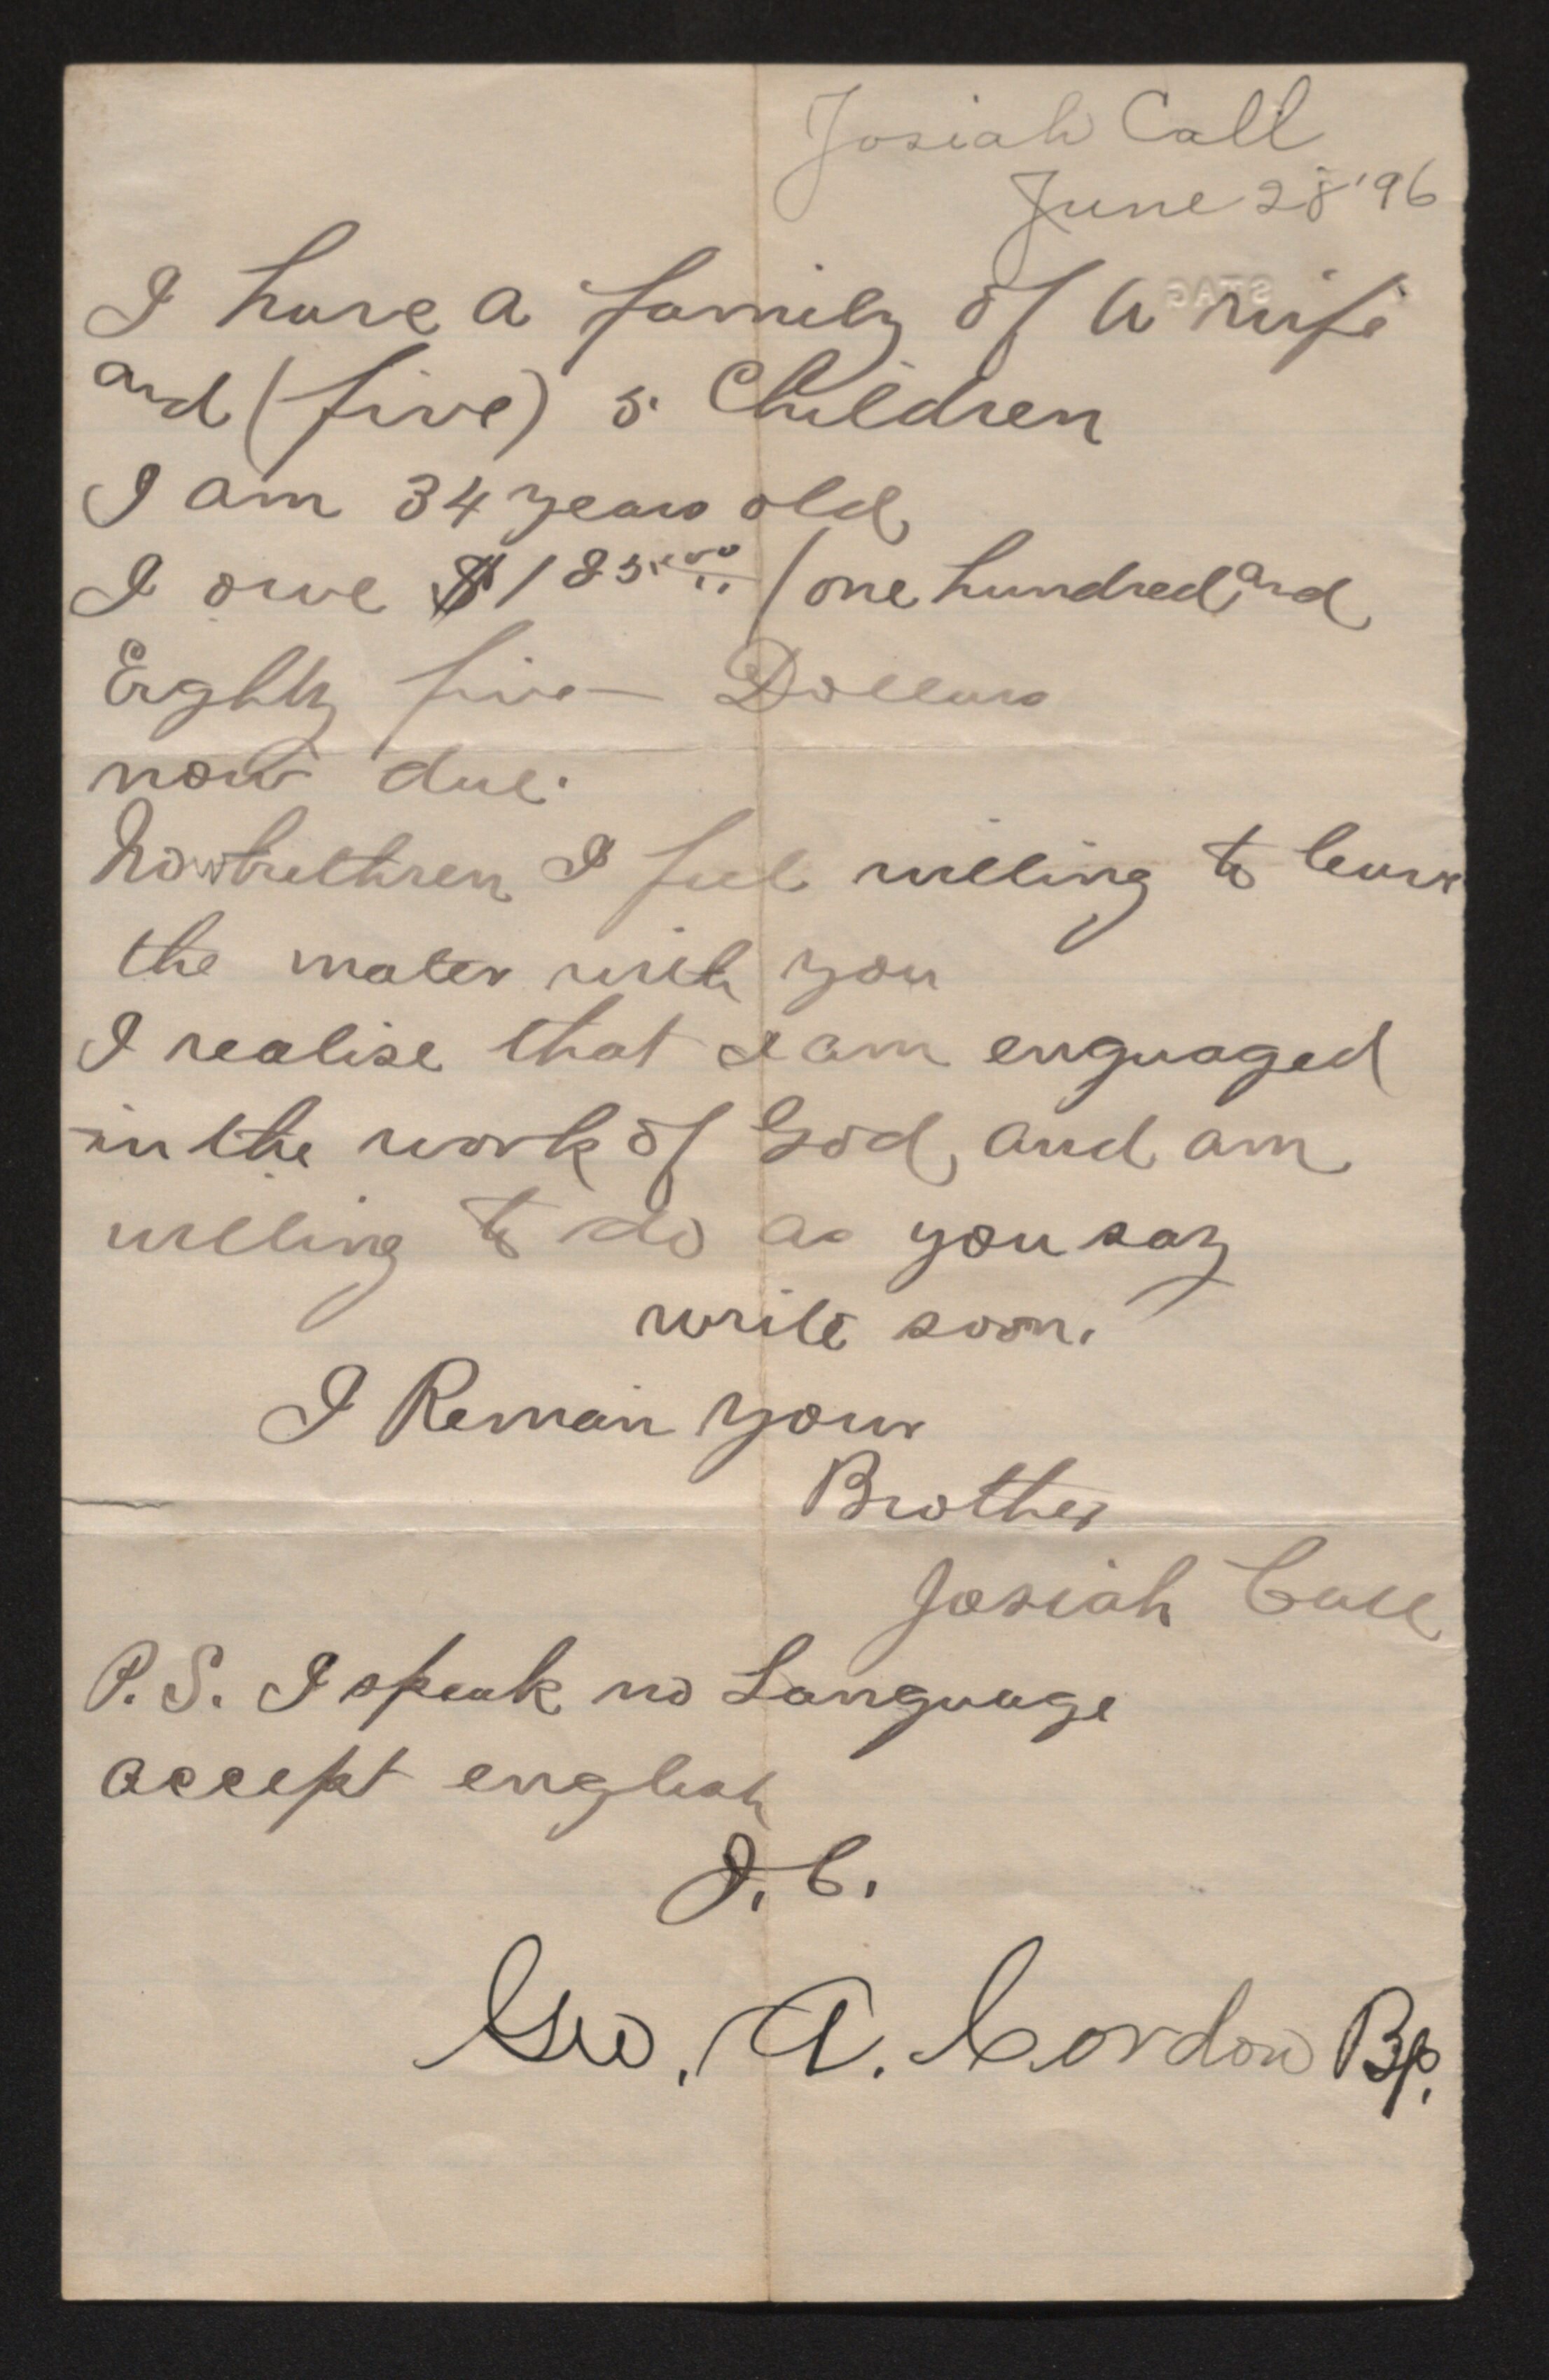 Josiah Call
June 28 '96
I have a family of a wife
and (five) 5. Children
I am 34 years old
I owe $185.00 / one hundred and
Eighty five — Dollars
now due.
Now brethren I feel willing to leave
the mater with you
I realise that I am enguaged
in the work of God, and am
willing to do as you say
write soon.
I Remain your
Brother
Josiah Call
P.S. I speak no Language
accept english
J. C.
Geo. A. Cordon Bp.